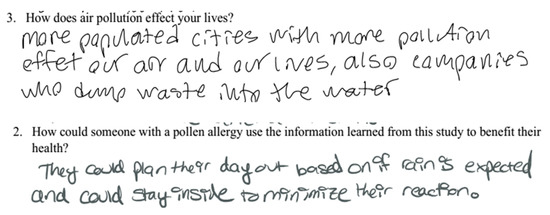 3. How does air pollution effect your lives?
more populated cities with more pollution
effet our air and our lives, also companies
who dump waste into the water
2. How could someone with a pollen allergy use the information learned from this study to benefit their
health?
They could plan their day out based on if rain is expected
and could stay inside to minimize their reaction.